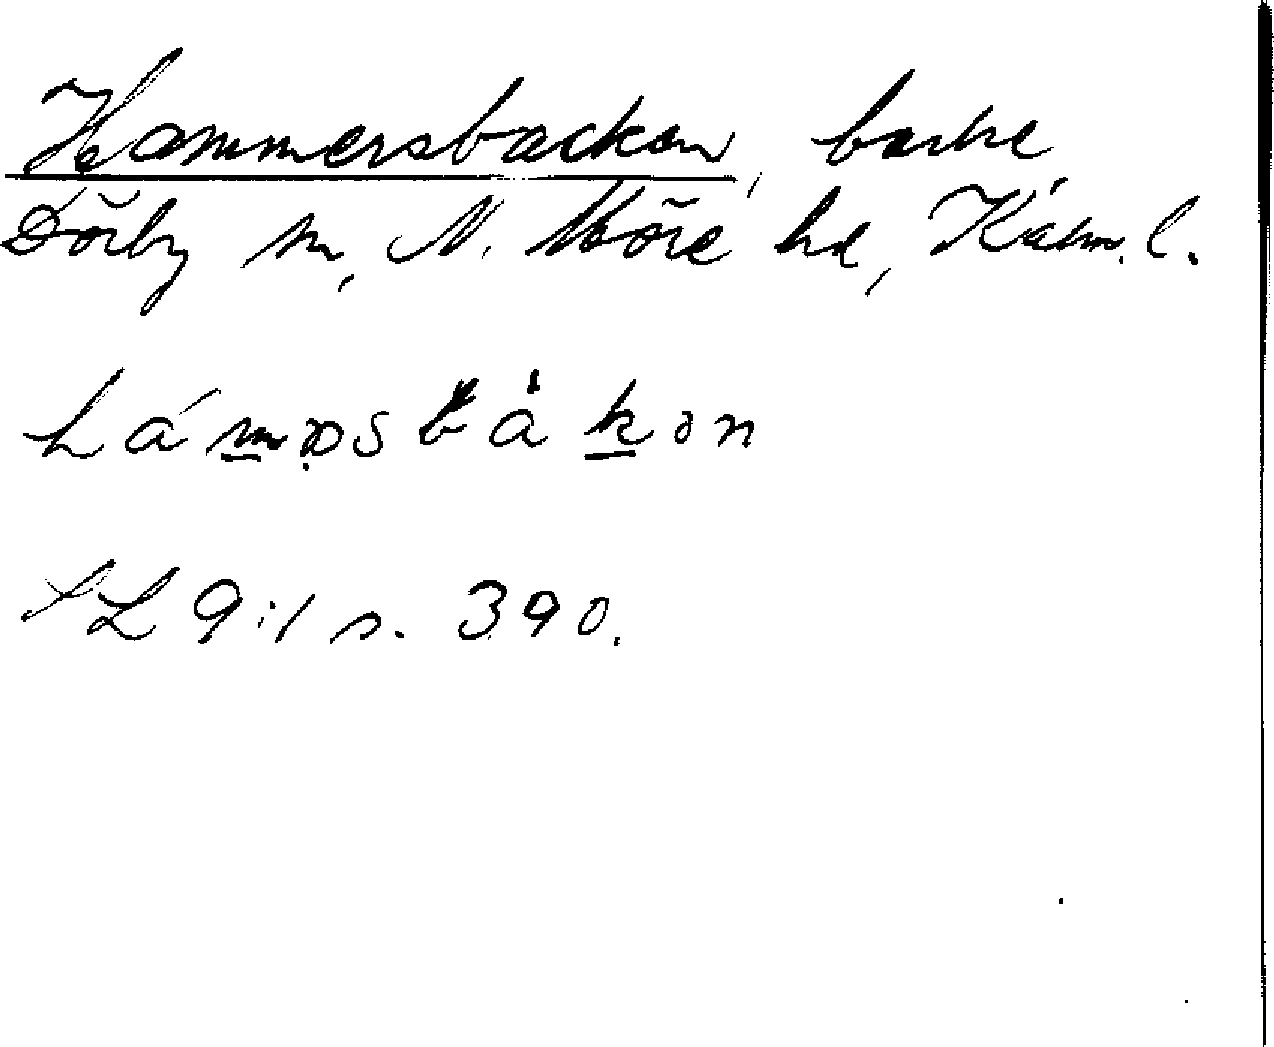 Hammersbacken, backe
Dörby sn, N. Möre hd, Kalm. l.
SL 9:1 s. 390.